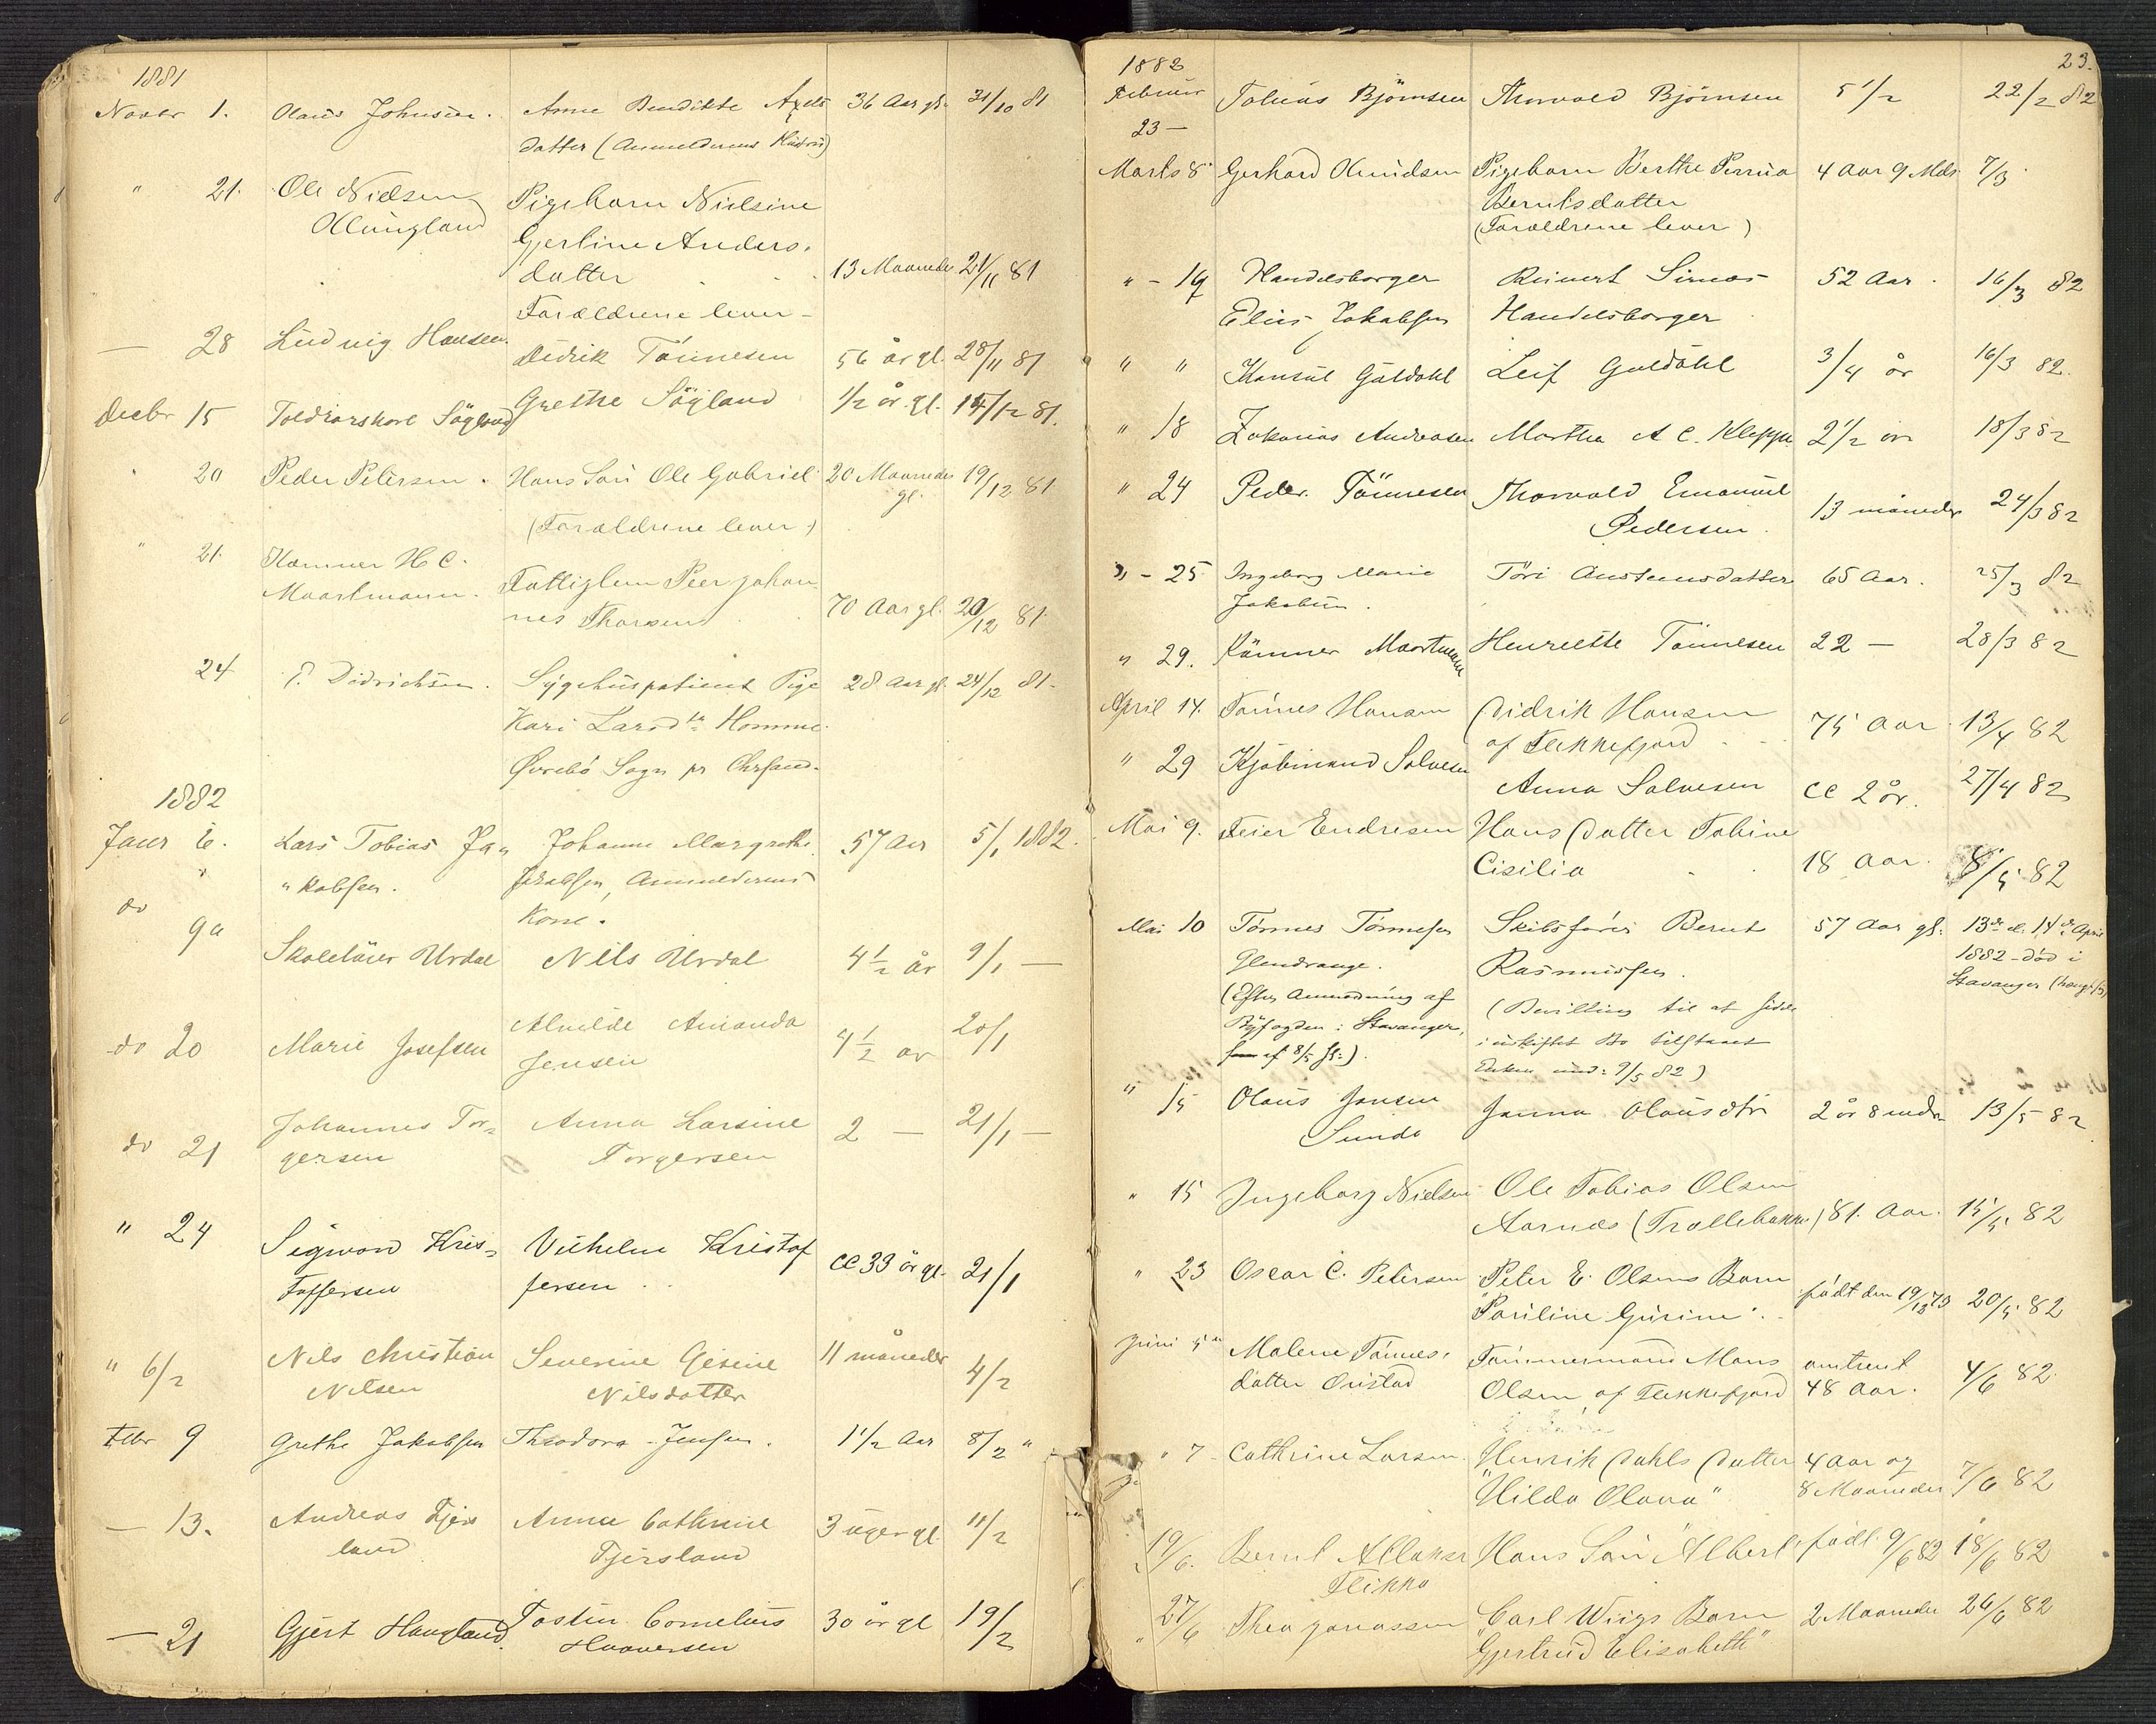 1881
Novbr 1. Olaus Johnsen. Anne Bendikte Axels 36 Aar gl. 31/10 81
datter (Anmelderens Hustru)
" 21. Ole Nielsen Pigebarn Nielsine
Gjerline Anders-
datter 13 Maaneder 21/11 81
Forældrene lever -
— 28 Ludvig Hansen. Didrik Tönnesen 56 år gl. 28/11 81
Decbr 15 Söyland Grethe Söyland 1/2 år. gl. 15/12 81.
" 20 Peder Petersen. Hans Sön Ole Gabriel 20 Maaneder 19/12 81
gl.
(Forældrene lever.)
" 21. Kæmner H C.
Maartmann. Fattiglem Peer Johan
nes Thorsen 70 Aar gl. 20/12 81.
24 P. Didrichsen. Sygehuspatient Pige 28 Aar gl. 24/12 81-
Kari Larsdtr Homme
Øvrebö Sogn pr Chrsand.
1882
Janr 6. Lars Tobias Ja„ Johanne Margrethe 57 Aar 5/1 1882.
„kobsen. Jakobsen, Anmelderens
Kone.
do 9a Skolelärer Urdal Nils Urdal 4 1/2 år 9/1 —
do 20 Marie Josefsen Alvilde Amanda 4 1/2 år 20/1
Jensen
do 21 Johannes Tor- Anna Larsine 2 — 21/1 —
gersen Torgersen
" 24 Sigwon Kris- Vilhelm Kristof cc 33 år gl. 21/1
toffersen fersen
" 6/2 Nils Christian Severine Gesine 11 måneder 4/2
Nilsen Nilsdatter
Febr 9 Grethe Jakobsen Theodora Jensen. 1 1/2 Aar 8/2 "
— 13. Andreas Fjers Anna Cathrine 3 uger gl. 11/2
land Fjersland
— 21 Gjert Haugland. Tostin Cornelius 30 år gl 19/2
Haaversen
23.
1882
Februar Tobias Björnsen Thorvald Björnsen 5 1/2 22/2 82
23 —
Marts 8. Gerhard Knudsen Pigebarn Berthe Perrua 4 Aar 9 Mdr 7/3
Berntsdatter
(Forældrene lever)
" - 16 Handelsborger Reinert Sirnæs 52 Aar. 16/3 82
Elias Jakobsen Handelsborger
" " Konsul Guldahl Leif Guldahl 3/4 år 16/3 82.
" 18 Zakarias Andreasen Martha A C. Kleppe 2 1/2 år 18/3 82
" 24 Peder. Tönnesen Thorvald Emanuel
Pedersen 13 måneder 24/3 82
" - 25 Ingeborg Marie Töri Austeensdatter 65 Aar. 25/3 82
Jakobsen.
" 29. Kämner Maartmann Henreette Tönnesen 22 — 28/3 82
April 14. Tönnes Hansen Didrik Hansen
af Flekkefjord 75 Aar 13/4 82
" 29 Kjöbmand Salvesen Anna Salvesen cc 2 år. 27/4 82
Mai 9. Feier Endresen Hans Datter Tobine
Cisilia 18 Aar. 8/5 82
Mai 10 Tönnes Tönnesen Skibsförer Bernt 57 Aar gl. 13de el. 14de April
Glendrange. Rasmussen. 1882 död i
(Efter Anmodning af (Bevilling til at sidde Stavanger
Byfogden i Stavanger, i uskiftet Bo tilstaaet
af 8/5 Enken 9/5 82)
" 15 Olaus Jansen Janna Olausdtr 2 år 8 mdr 13/5 82
Sunde
" 15 Ingeborg Nielsen Ole Tobias Olsen
Aarnæs (Trollebakke) 81. Aar. 15/5 82
" 23 Oscar C. Petersen Peter E. Olsens Barn
"Pauline Gurine". födt den 19/12 73 20/5 82
Juni 5te Malene Tönnes- Tömmermand Mons omtrent 4/6 82
datter Öristad Olsen af Flekkefjord 48 Aar.
" 7 Cathrine Larsen. Henrik Dahls Datter 4 Aar og 7/6 82
"Hilda Olava" 8 Maaneder
19/6. Bernt Hans Sön "Albert" födt 9/6 82 18/6 82
Flikka
" 27/6 Thea Jonassen Carl Wiigs Barn 2 Maaneder 26/6 82
"Gjertrud Elisabeth"